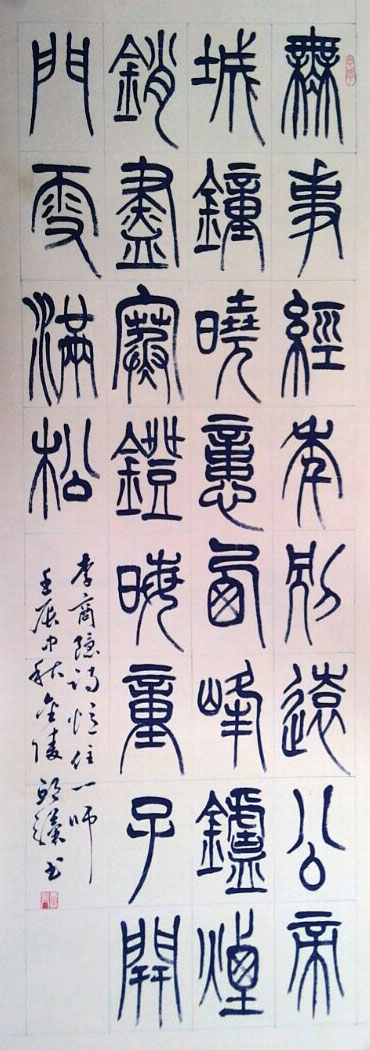 無事經年別遠公帝
城鐘曉憶西峰鑪煙
銷盡寒鐙晦童子開
門雪滿松
李商隱詩憶住一师
壬辰中秋金陵书